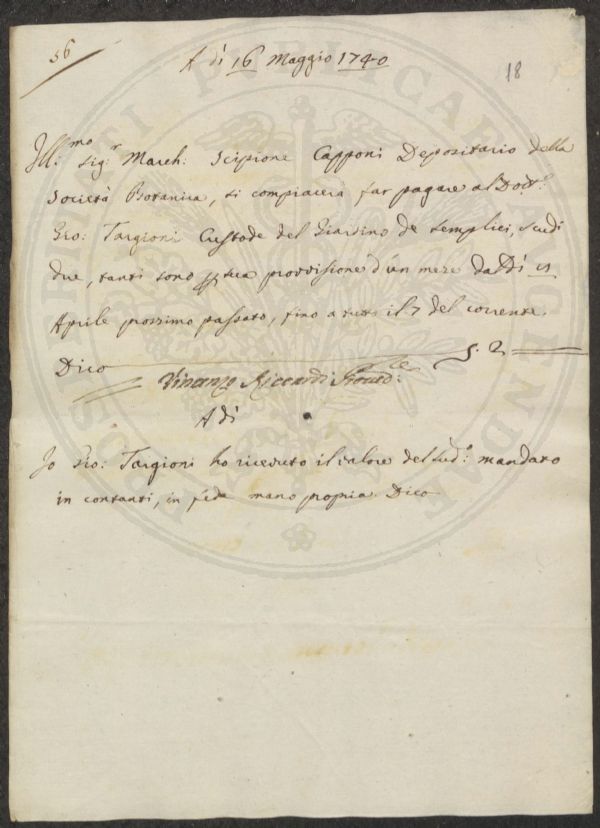 56
A dì 16 Maggio 1740
18
Ill:mo Sig:r March: Scipione Capponi Depositario della
Società Botanica, si compiacerà far pagare al Dott:
Gio: Targioni Custode del Giardino de Semplici, Scudi
due, tanti sono p sua provvisione d'un mese dal dì
Aprile prossimo passato, fino a tutto il 7 del corrente.
Dico S. 2
Vincenzo Riccardi
A dì
Io Gio: Targioni ho ricevuto il valore del sud: mandato
in contanti, in fede mano propria. Dico